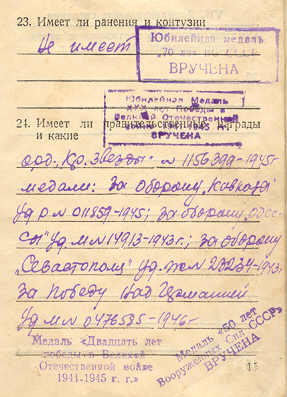 23. Имеет ли ранения и контузии
Не имеет
Юбилейная медаль
„70 лет СССР
ВРУЧЕНА
Юбилейная Медаль
XXX лет Победы в
Великой Отечественной
войне 1941-1945
ВРУЧЕНА
24. Имеет ли правительственные награды
и какие
орд. Кр. Звезды № 1156399-1945г
медали: За оборону „Кавказа"
уд № 011859-1945; За оборону Одес-
сы" уд. М № 14913-1943г.; За оборону
„Севастополя" уд.
За Победу над Германией
уд М № 0476535-1946г
Медаль «Двадцать лет
победы в Великой
Отечественной войне
1941-1945 г. г.»
Медаль «50 лет
Вооруженных Сил СССР»
ВРУЧЕНА